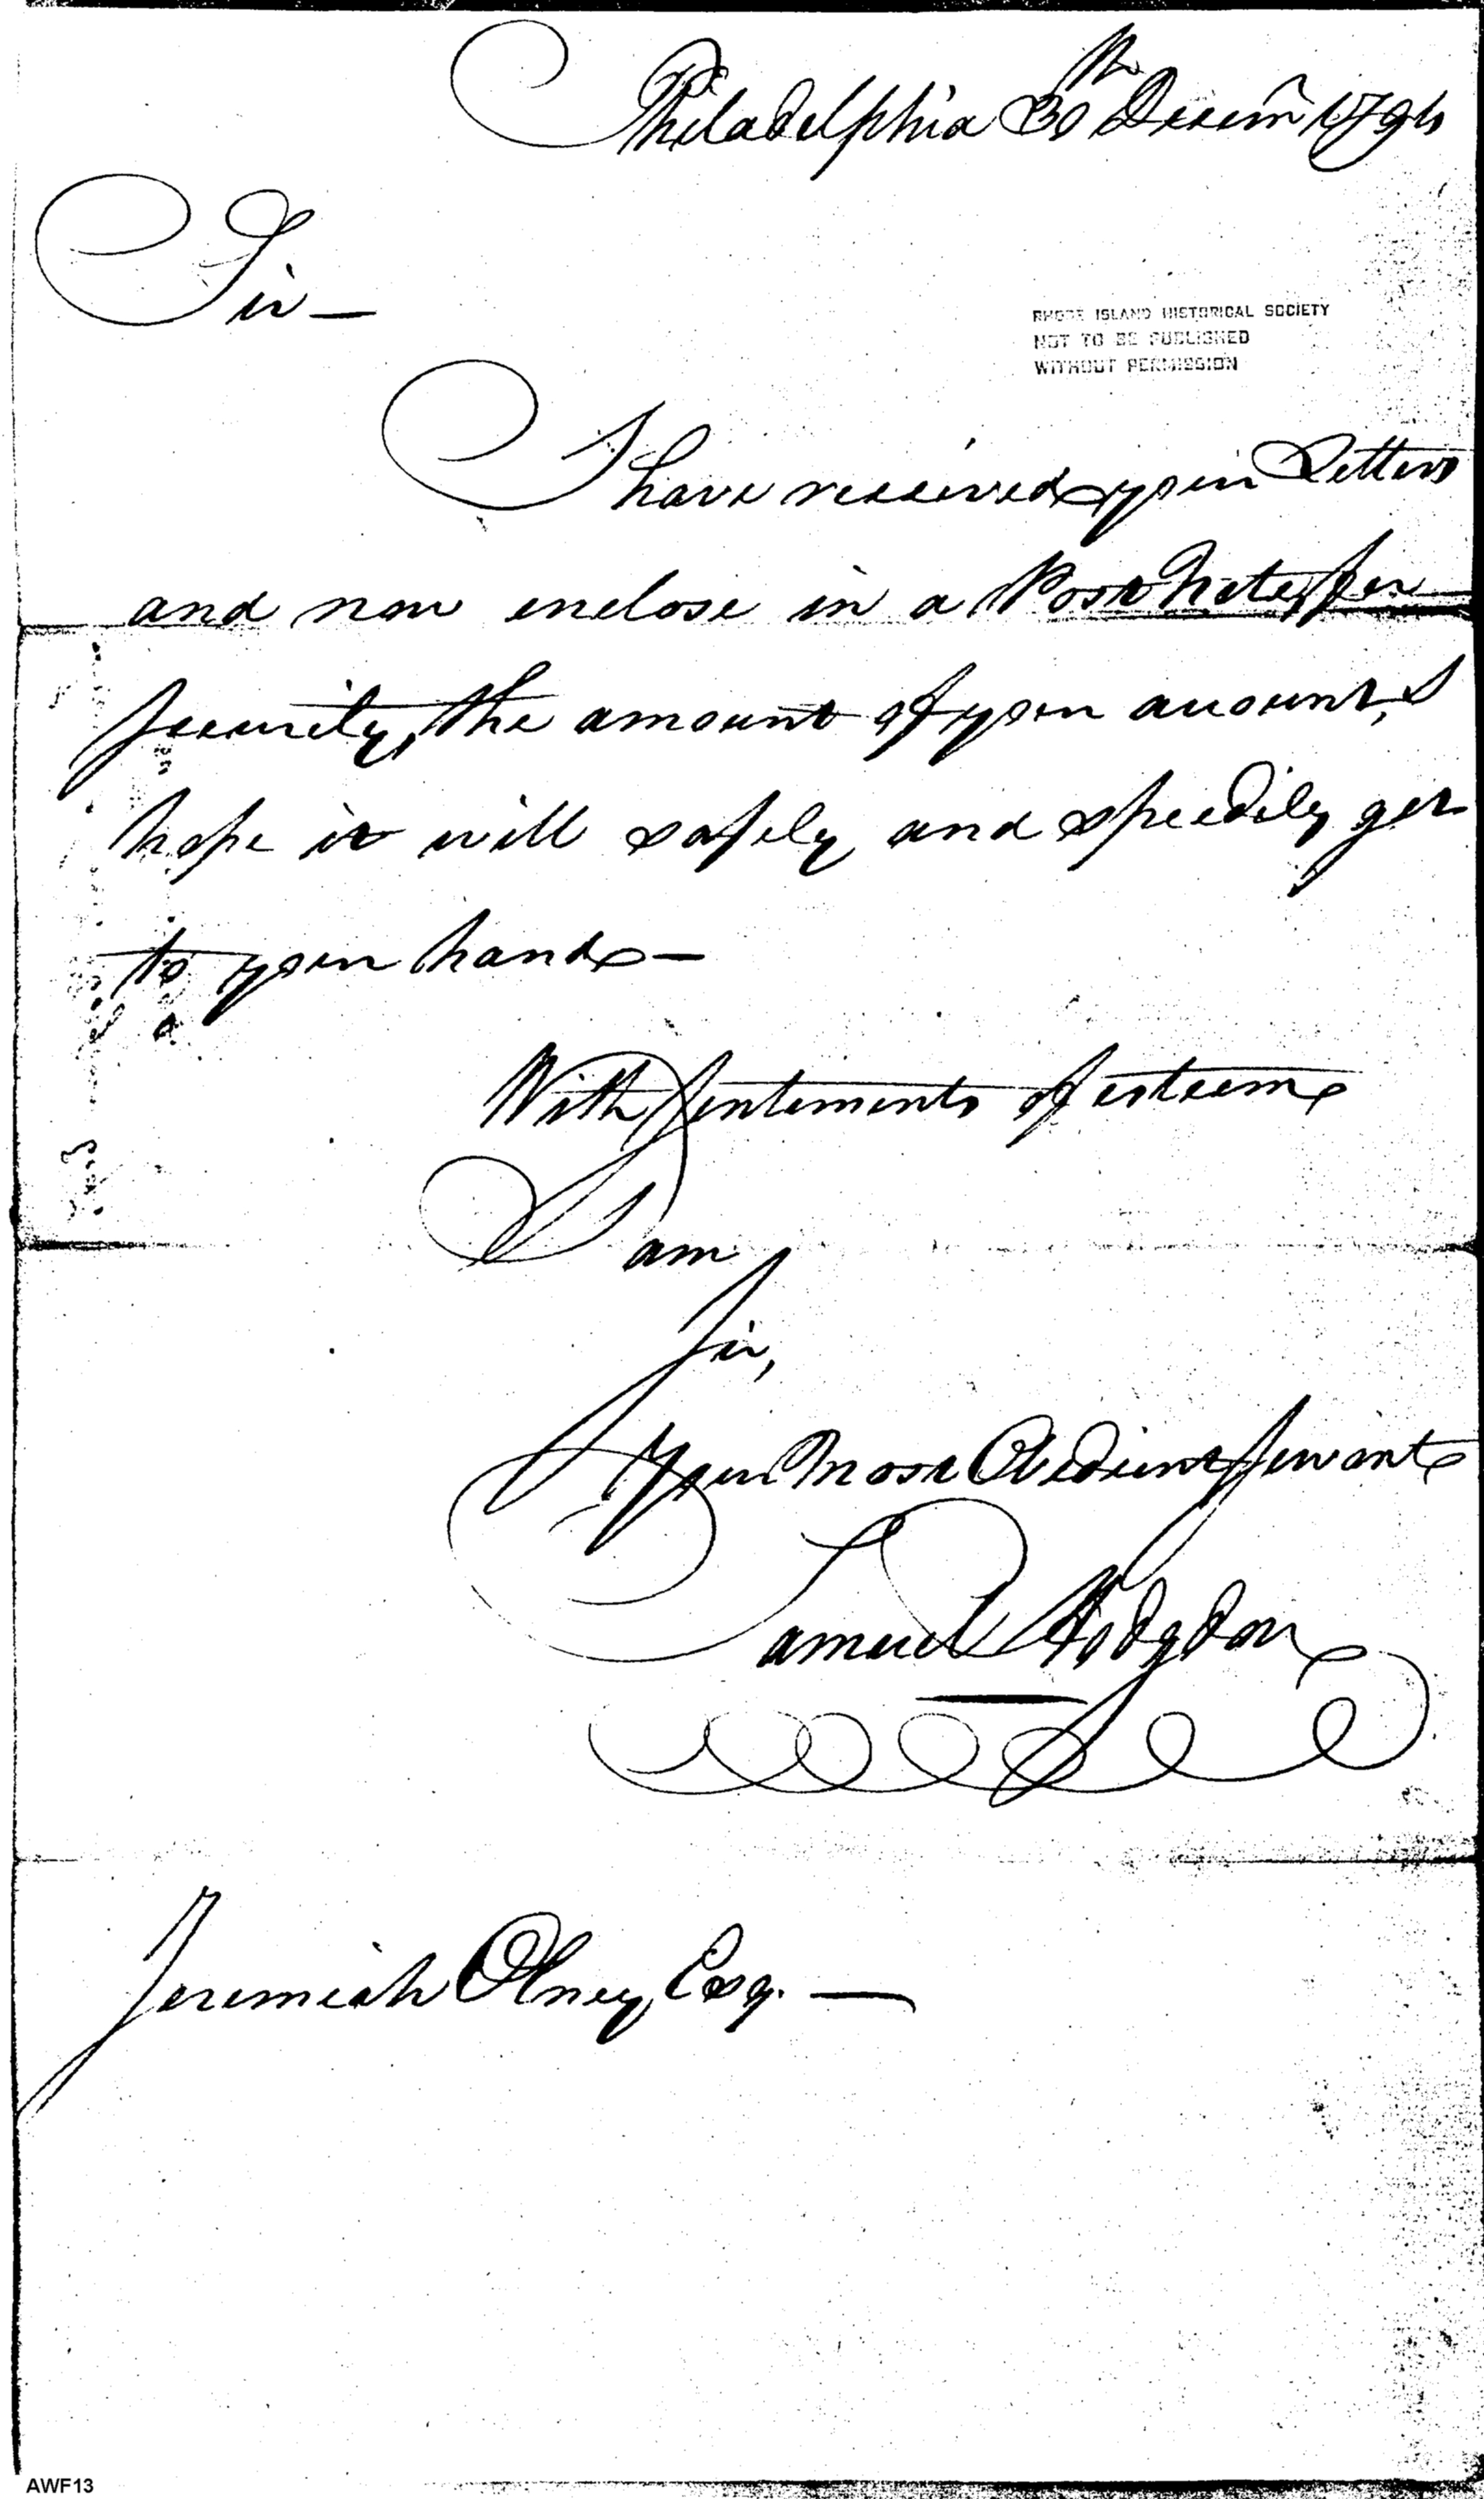 Philadelphia 30th Decemr 1794
Sir —
RHODE ISLAND HISTORICAL SOCIETY
NOT TO BE PUBLISHED
WITHOUT PERMISSION
I have received your Letters
and now enclose in a Post Note, for
security, the amount of your account, I
hope it will safely and speedily get
to your hands —
With sentiments of esteem
I am
Sir,
Your Most Obedient Servant
Samuel Hodgdon
Jeremiah Olney, Esq. —
AWF13